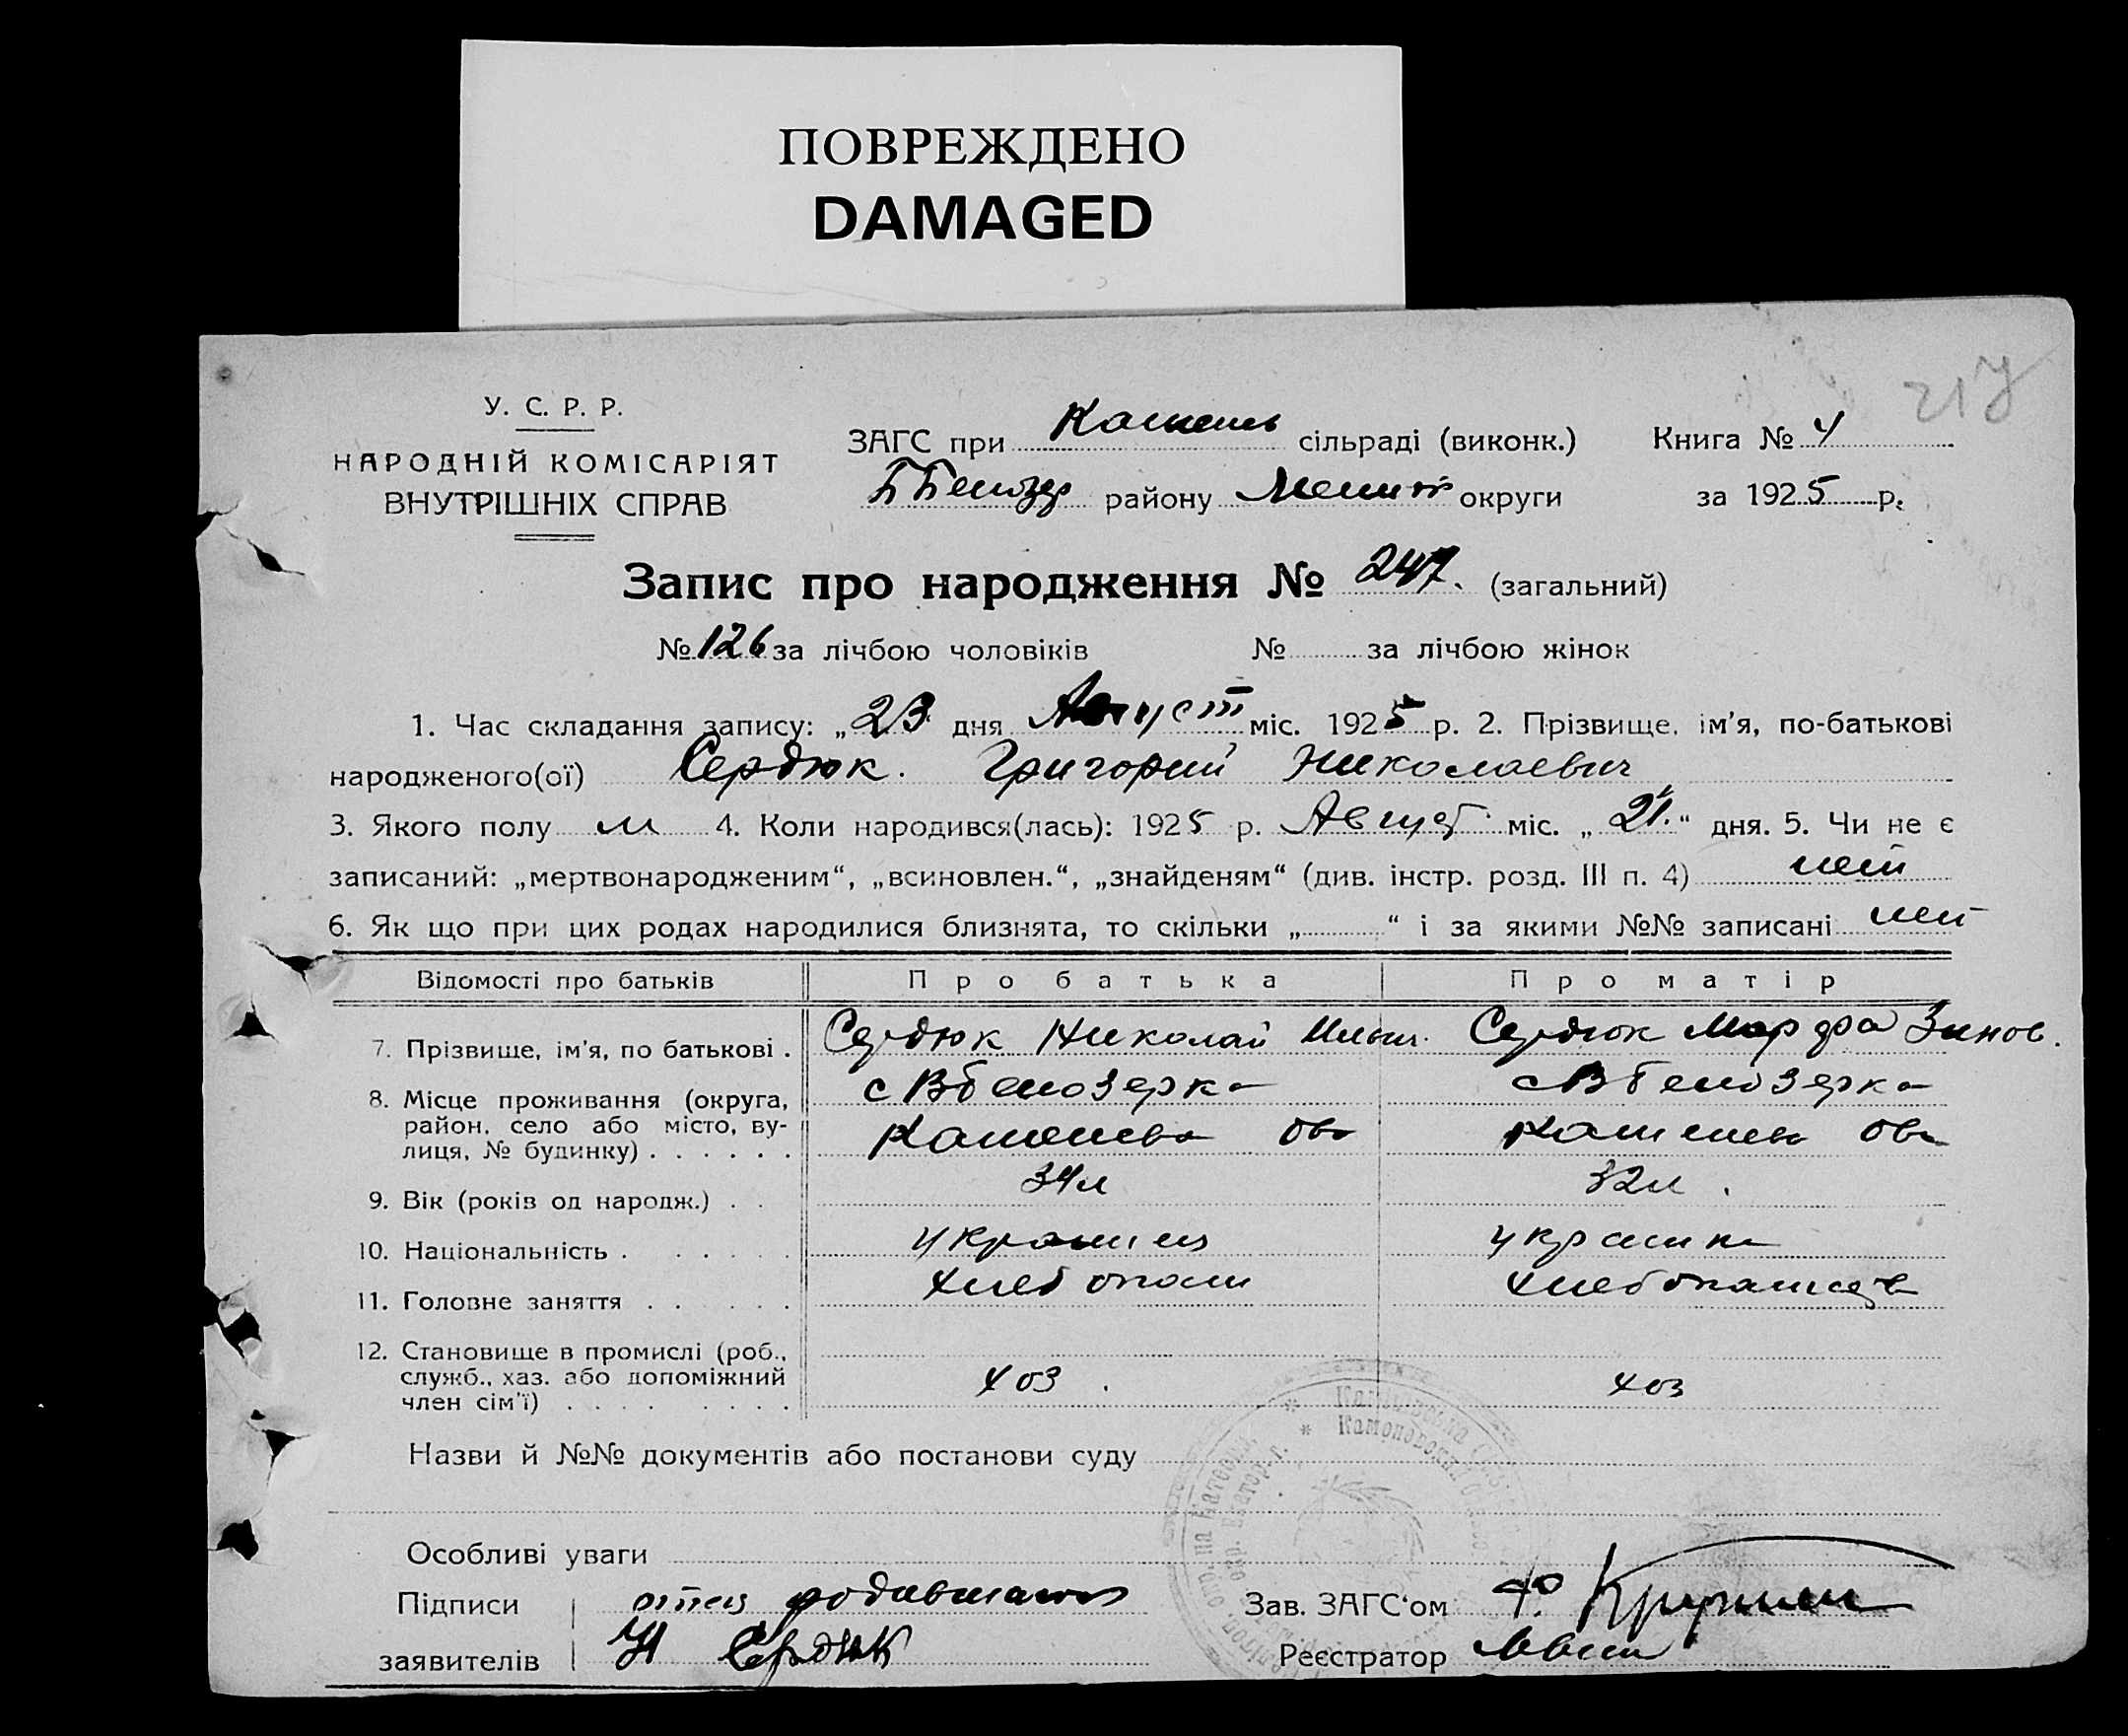 ПОВРЕЖДЕНО
DAMAGED
217
У. С. Р. Р.
НАРОДНІЙ КОМІСАРІЯТ
ВНУТРІШНІХ СПРАВ
ЗАГС при сільраді (виконк.) Книга № 4
району округи за 1925 р.
Запис про народження № 247. (загальний)
№ 126 за лічбою чоловіків № за лічбою жінок
1. Час складання запису: „23 дня Август міс. 1925 р. 2. Прізвище, ім'я, по-батькові
народженого(ої) Сердюк. Григорий Николаевич
3. Якого полу м 4. Коли народився(лась): 1925 р. Август міс. „21.“ дня. 5. Чи не є
записаний: „мертвонародженим“, „всиновлен.“, „знайденям“ (див. інстр. розд. III п. 4) нет
6. Як що при цих родах народилися близнята, то скільки „ “ і за якими №№ записані нет
Відомості про батьків Про батька Про матір
7. Прізвище, ім'я, по батькові . Сердюк Николай Сердюк Марфа Зинов.
8. Місце проживання (округа, район, село або місто, вулиця, № будинку) . . . . . . с Вбелозерка с Вбелозерка
9. Вік (років од народж.) . . 34л 32л .
10. Національність . . . . . . украинец украинка
11. Головне заняття . . . . . хлебопаш
12. Становище в промислі (роб., служб., хаз. або допоміжний член сім'ї) . . . . . . . . хоз . хоз
Назви й №№ документів або постанови суду
Особливі уваги
Підписи отец Зав. ЗАГС'ом Ф.
заявителів Н Сердюк Реєстратор